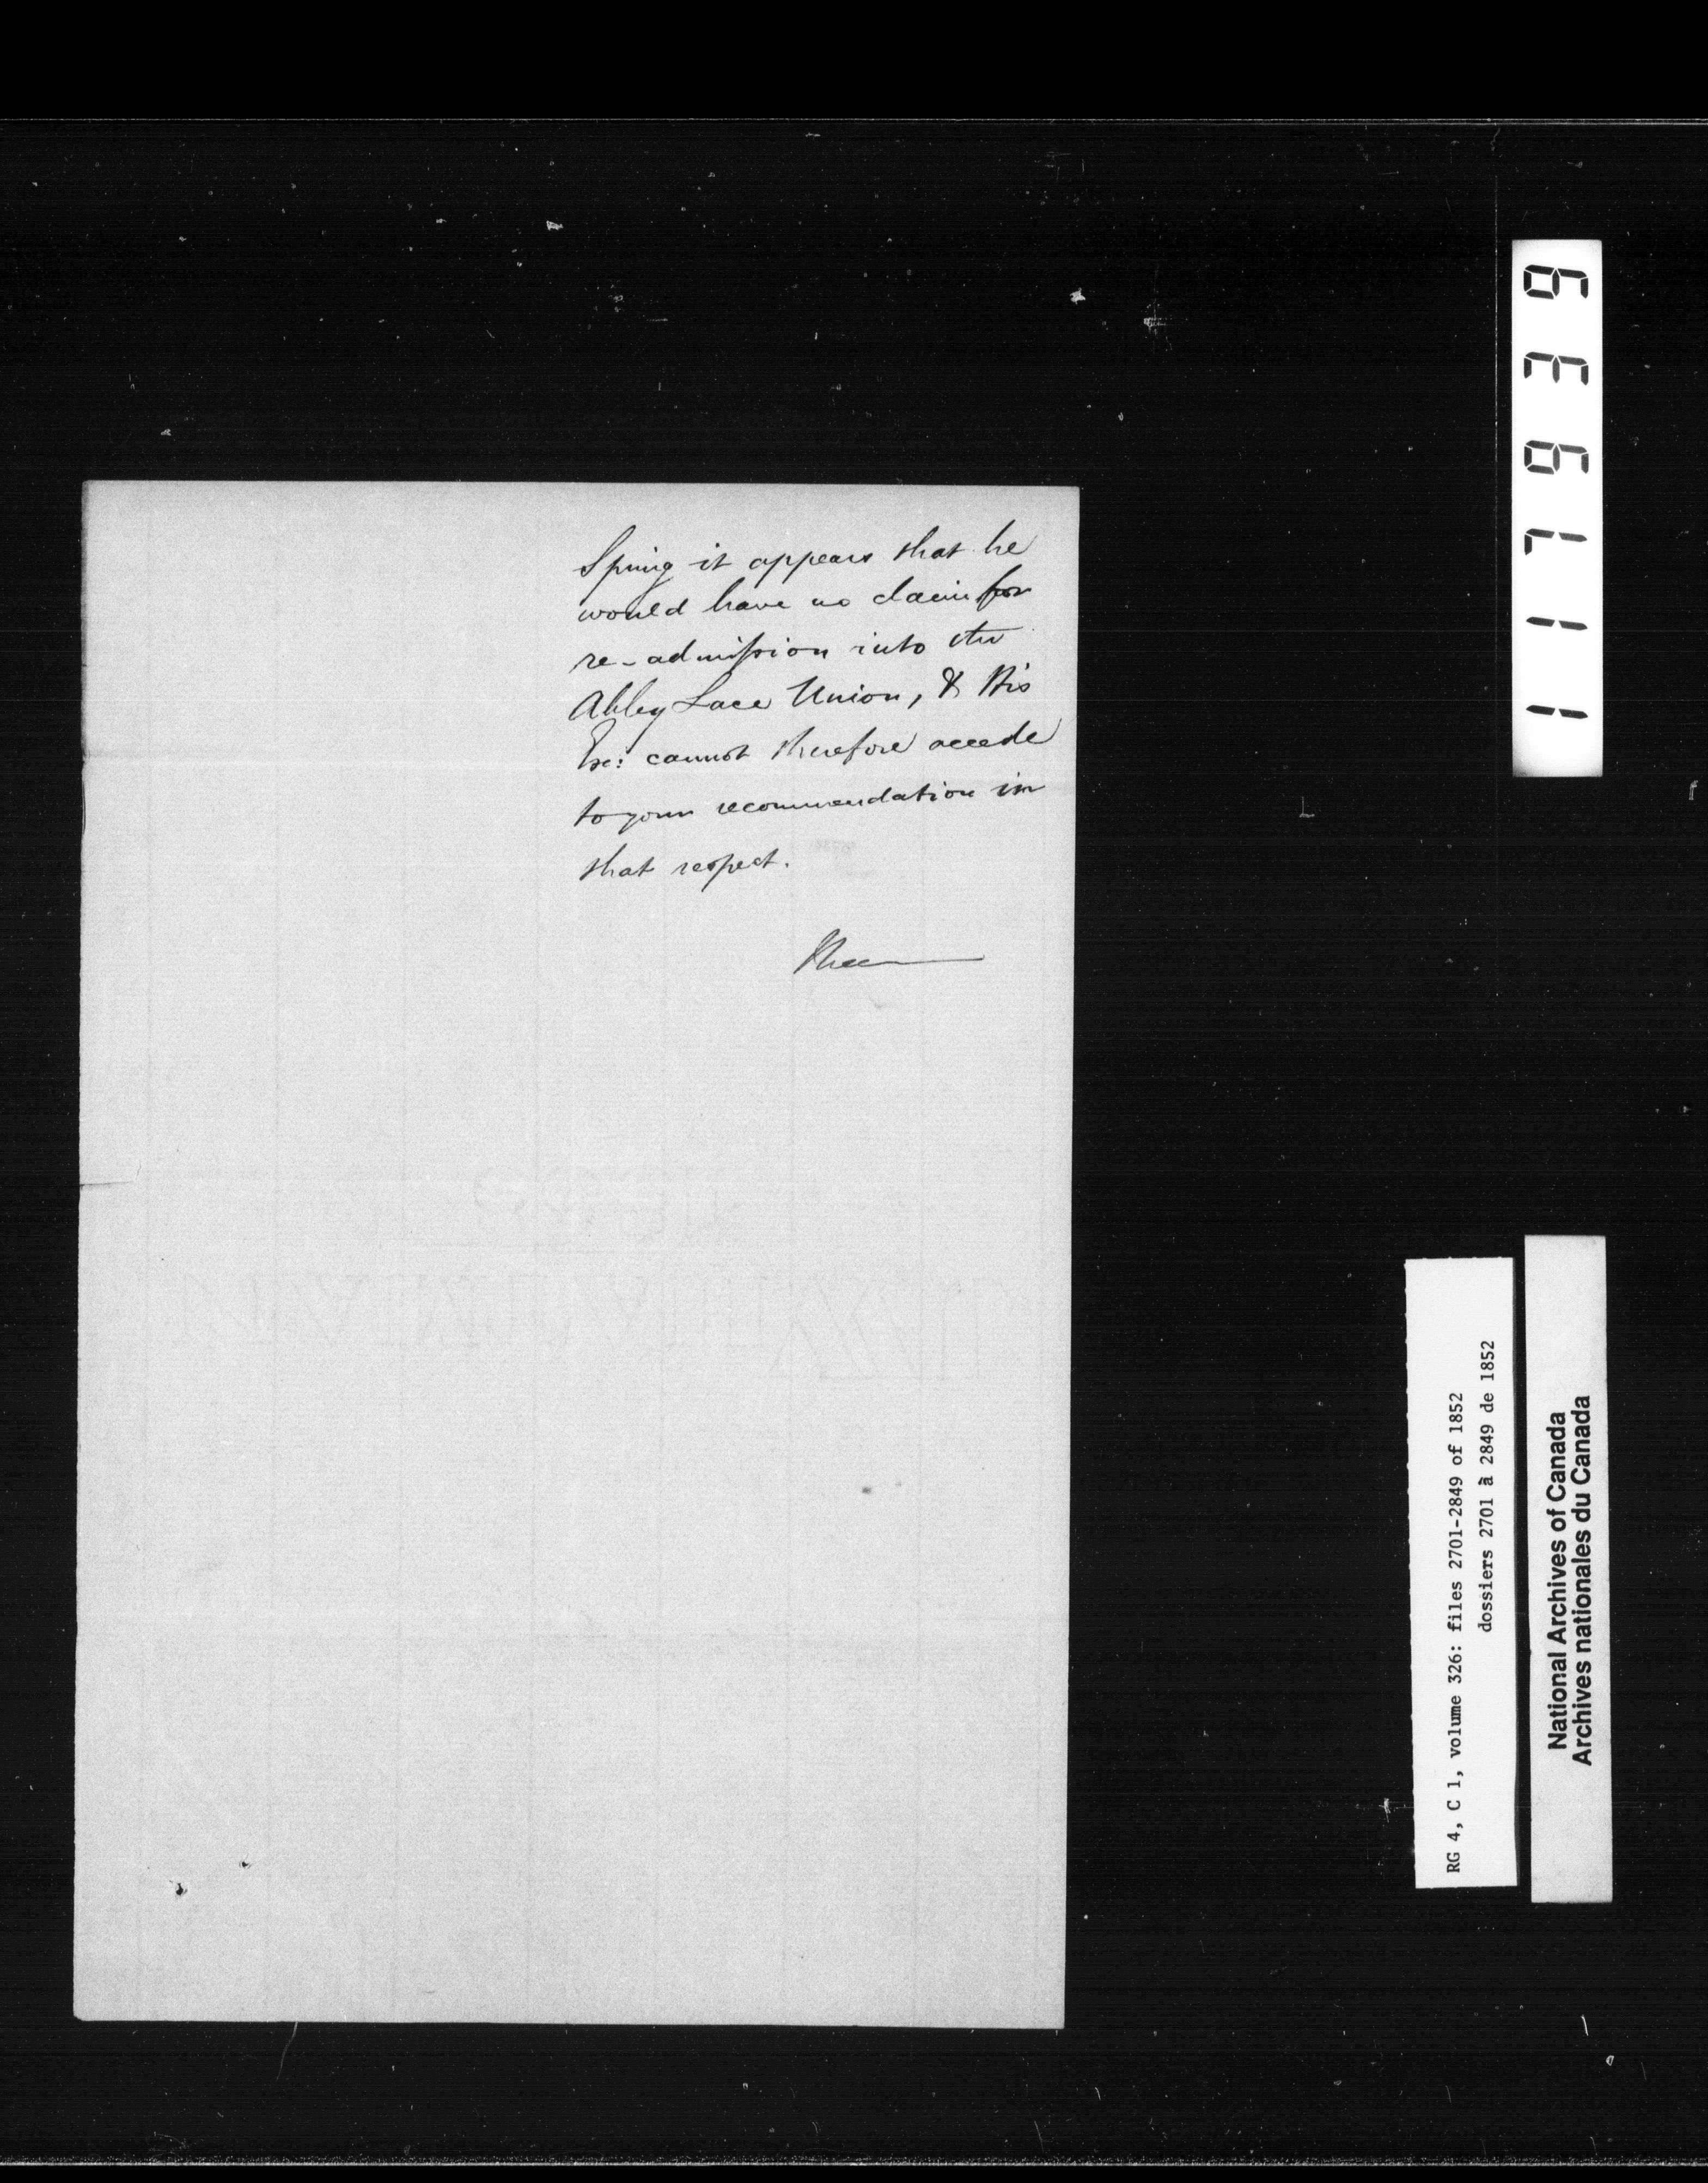 Spring it appears that he
would have no claim for
re-admission into the
Abbey Lace Union, & His
Exc: cannot therefore accede
to your recommendation in
that respect.
RG 4, C 1, volume 326: files 2701-2849 of 1852
dossiers 2701 à 2849 de 1852
National Archives of Canada
Archives nationales du Canada